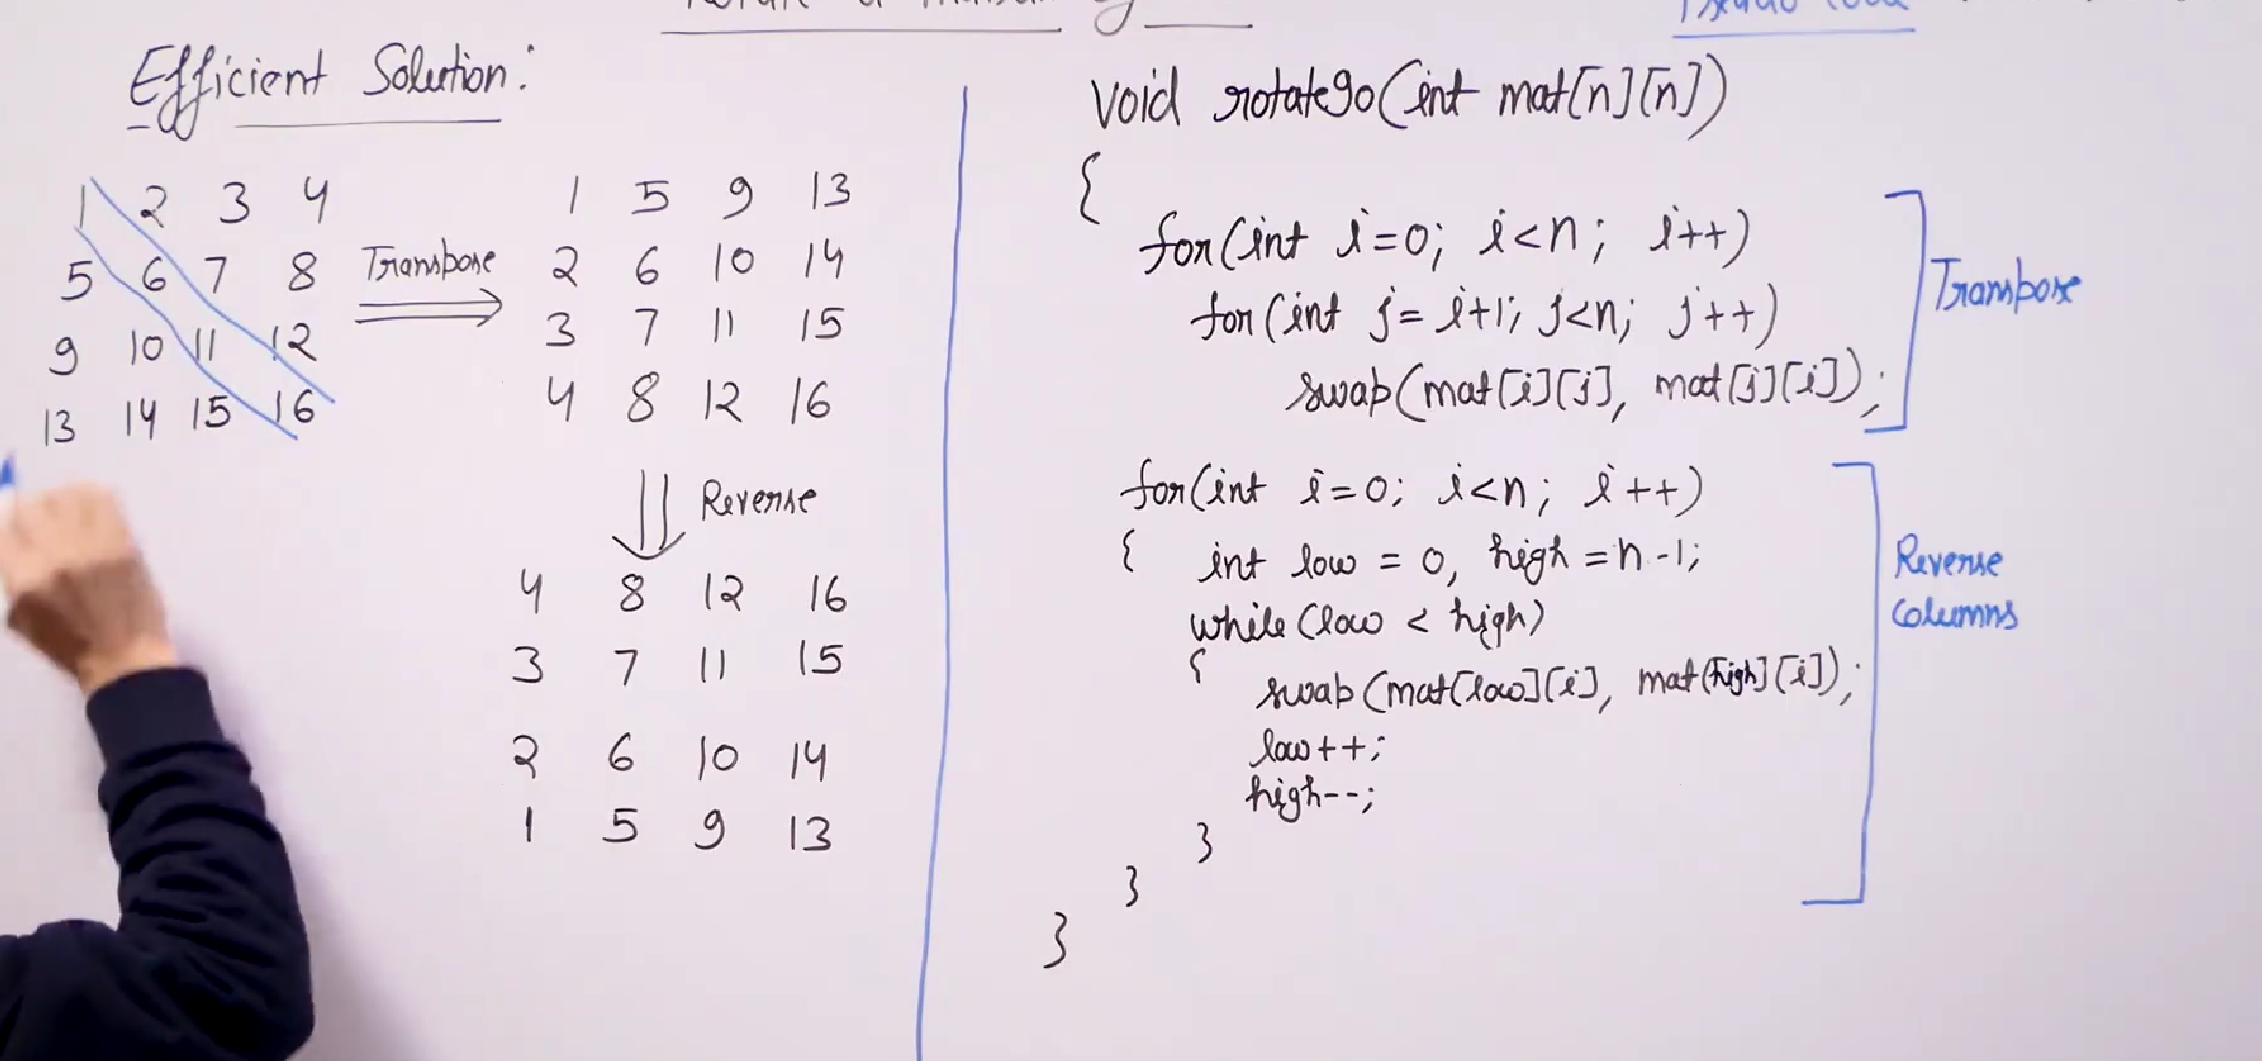 Efficient Solution:
1 2 3 4
5 6 7 8
9 10 11 12
13 14 15 16
Transpose
1 5 9 13
2 6 10 14
3 7 11 15
4 8 12 16
Reverse
4 8 12 16
3 7 11 15
2 6 10 14
1 5 9 13
void rotate90(int mat[n][n])
{
for(int i=0; i<n; i++)
for(int j=i+1; j<n; j++)
swap(mat[i][j], mat[j][i]);
Transpose
for(int i=0; i<n; i++)
{ int low = 0, high = n-1;
while(low < high)
{
swap(mat[low][i], mat[high][i]);
low++;
high--;
}
}
}
Reverse
Columns